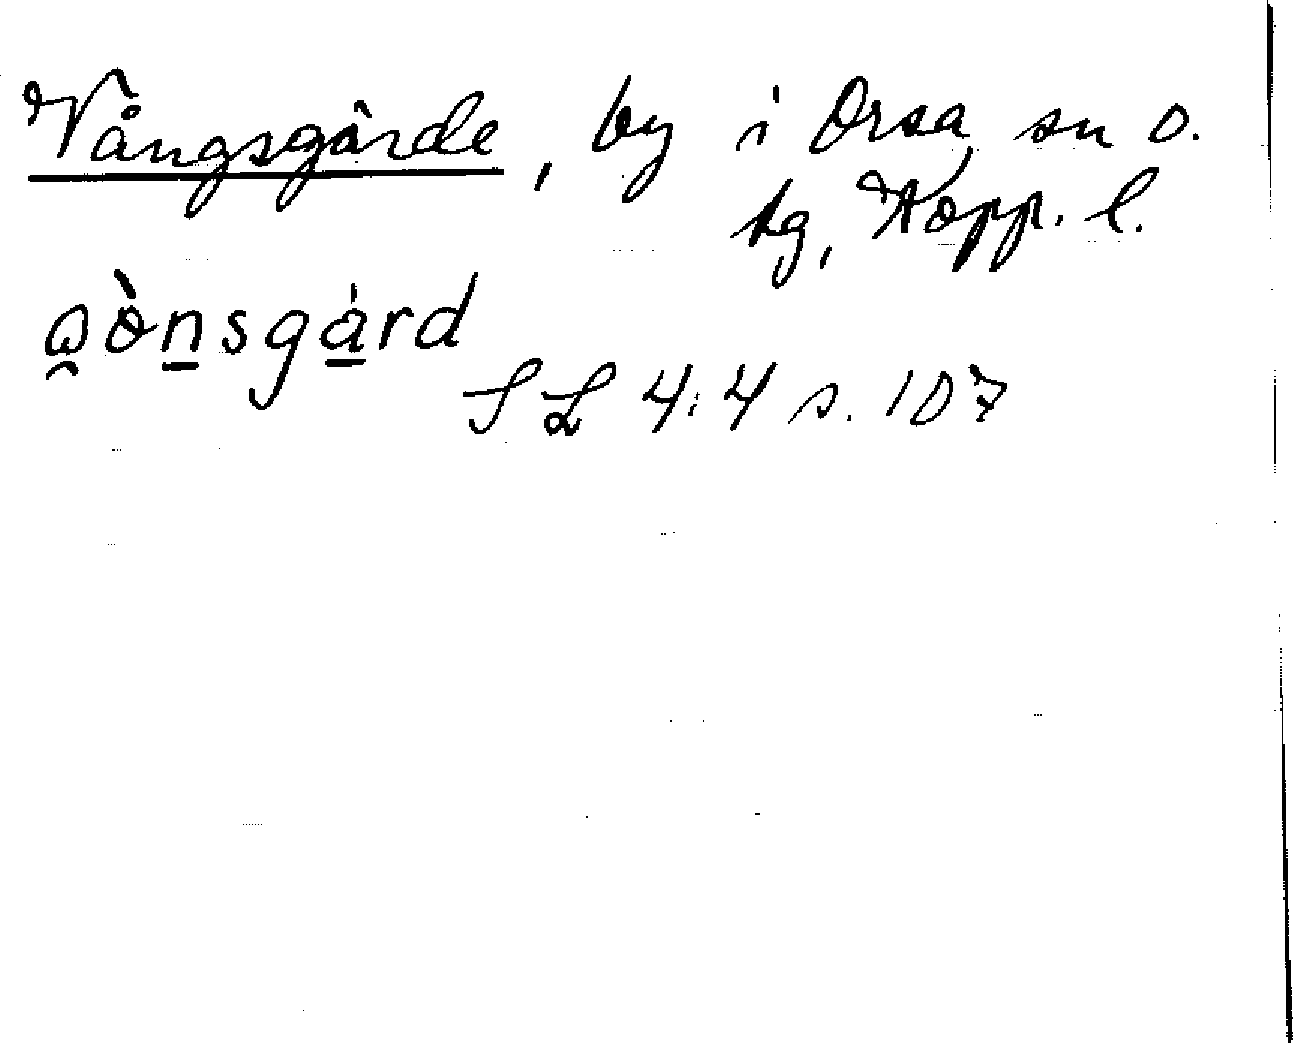 Vångsgärde, by i Orsa sn o.
tg, Kopp. l.
ω̯ò̵n̲sgá̲rd
SL 4:4 s. 107